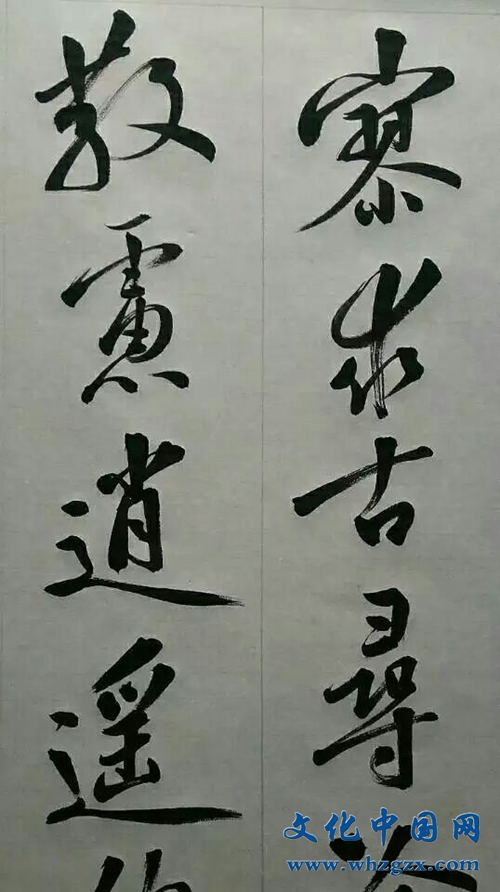 寥求古尋
散慮逍遥
文化中国网
www.whzgzx.com